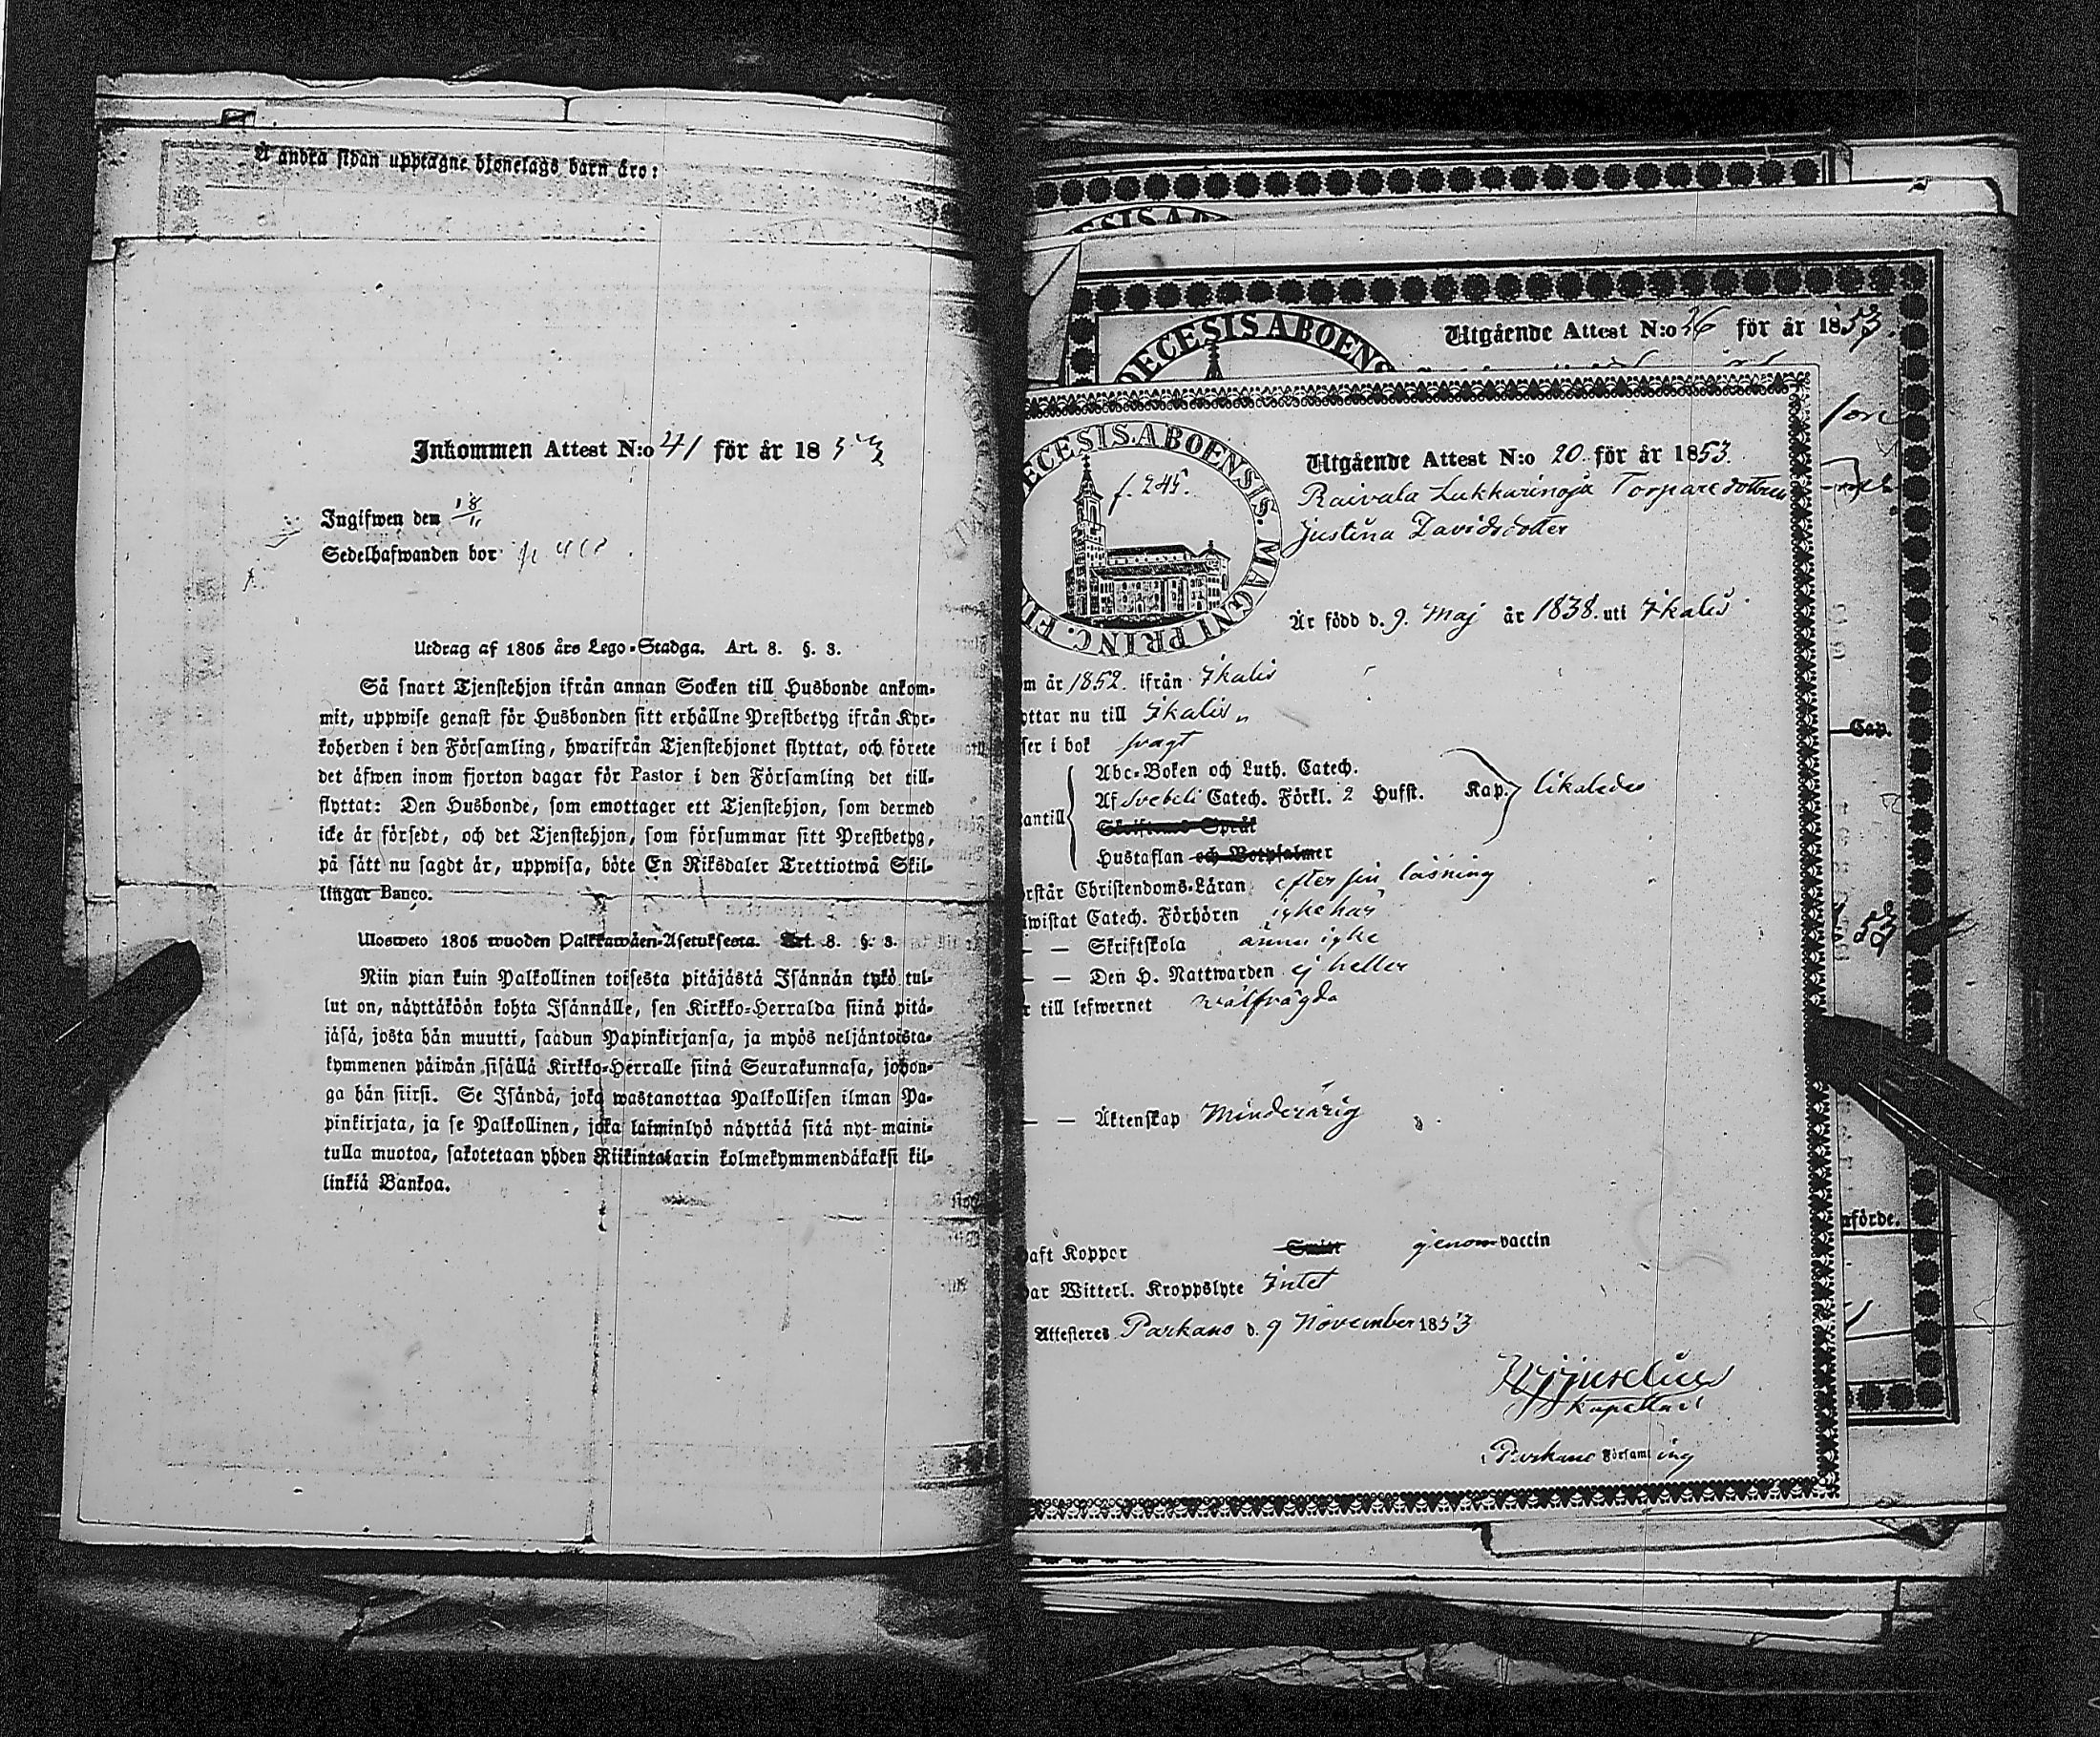 Å andra sidan upptagne hjonelags barn äro:
Inkommen Attest N:o 41 för år 1853
Ingifwen den 18/11
Sedelhafwanden bor
Utdrag af 1805 års Lego-Stadga. Art. 8. §. 3.
Så snart Tjenstehjon ifrån annan Socken till Husbonde ankom-
mit, uppwise genast för Husbonden sitt erhållne Prestbetyg ifrån Kyr-
koherden i den Församling, hwarifrån Tjenstehjonet flyttat, och förete
det äfwen inom fjorton dagar för Pastor i den Församling det till-
flyttat: Den Husbonde, som emottager ett Tjenstehjon, som dermed
icke är försedt, och det Tjenstehjon, som försummar sitt Prestbetyg,
på sätt nu sagdt är, uppwisa, böte En Riksdaler Trettiotwå Skil-
lingar Banco.
Ulosweto 1805 wuoden Palkkawäen-Asetuksesta. Art. 8. §. 3.
Niin pian kuin Palkollinen toisesta pitäjästä Isännän tykö tul-
lut on, näyttäköön kohta Isännälle, sen Kirkko-Herralda siinä pitä-
jäsä, josta hän muutti, saadun Papinkirjansa, ja myös neljäntoista-
kymmenen päiwän sisällä Kirkko-Herralle siinä Seurakunnasa, johon-
ga hän siirsi. Se Isändä, joka wastanottaa Palkollisen ilman Pa-
pinkirjata, ja se Palkollinen, joka laiminlyö näyttää sitä nyt maini-
tulla muotoa, sakotetaan yhden Riikintalarin kolmekymmendäkaksi kil-
linkiä Bankoa.
ECESIS ABO
DECESIS ABOENS
Utgående Attest N:o 36 för år 1853.
Cap.
53
förde.
ECESIS. ABOENSIS. MAGNI PRINC. FI
f. 245.
Utgående Attest N:o 20. för år 1853.
Raivala Lukkarinoja Torparedottren
Justina Davidsdotter
Är född d. 9. Maj år 1838. uti Ikalis
m år 1852. ifrån Ikalis
ttar nu till Ikalis
ser i bok svagt
antill
Abc-Boken och Luth. Catech.
Af Svebeli Catech. Förkl. 2 Husst. Kap. likaledes
Skriftens Språk
Hustaflan och Botpsalmer
rstår Christendoms-Läran efter sin läsning
iwistat Catech. Förhören icke har
— — Skriftskola ännu icke
— — Den H. Nattwarden ej heller
r till lefwernet wälfrägda
— — Äktenskap Minderårig
aft Koppor Smitt genom vaccin
ar Witterl. Kroppslyte Intet
Attesteres Parkano d. 9 November 1853
Kapellan
i Parkano Församling